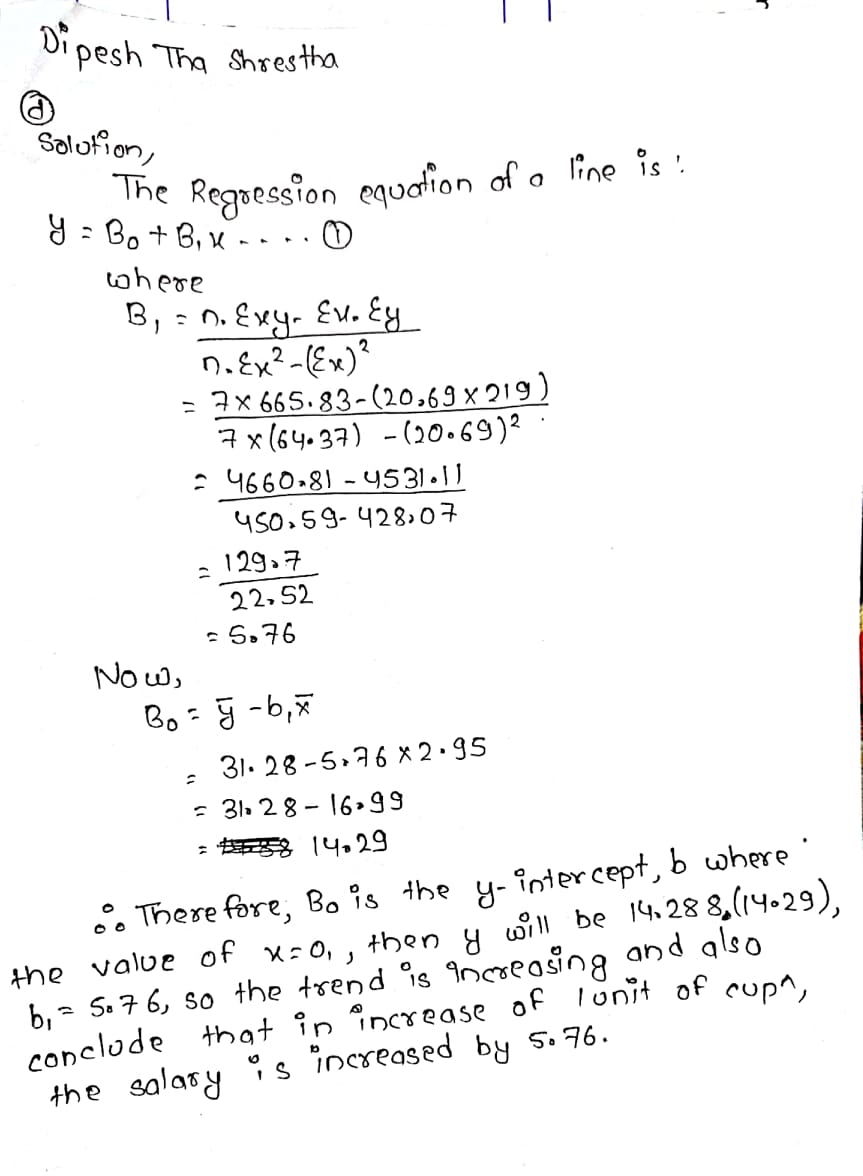 Dipesh Tha Shrestha
ⓓ
Solution,
The Regression equation of a line is :
y = B₀ + B₁x - - . . . ①
where
B₁ = n. Σxy - Σx. Σy
n. Σx² - (Σx)²
= 7 × 665.83 - (20.69 × 219)
7 × (64.37) - (20.69)²
= 4660.81 - 4531.11
450.59 - 428.07
= 129.7
22.52
= 5.76
Now,
B₀ = ȳ - b₁x̄
= 31.28 - 5.76 × 2.95
= 31.28 - 16.99
= 14.29
∴ Therefore, B₀ is the y-intercept, b where
the value of x=0, , then y will be 14.288,(14.29),
b₁ = 5.76, so the trend is increasing and also
conclude that in increase of 1 unit of cupA,
the salary is increased by 5.76.